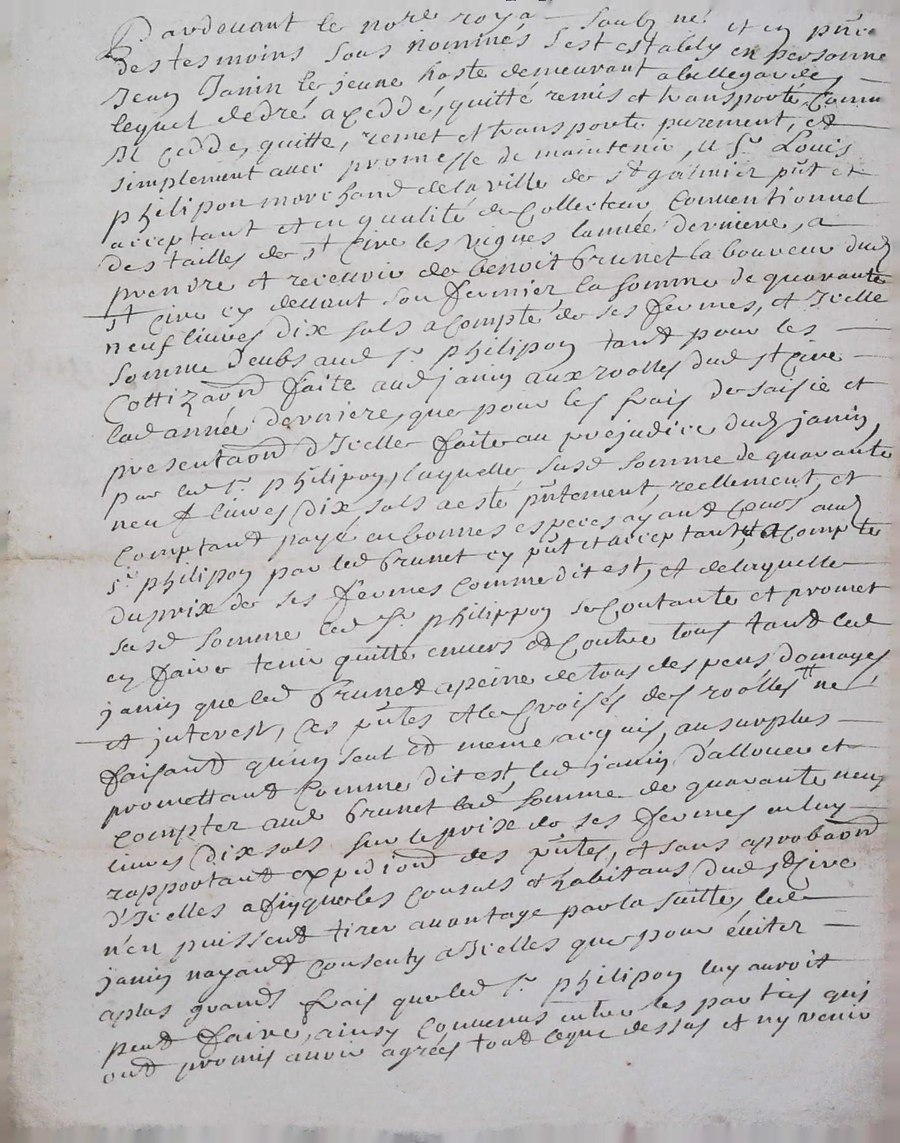 Pardevant le no.re royal soub.né et en p̃nce
des tesmoins sous nommés s'est estably en personne
Jean Janin le jeune hoste demeurant a bellegarde,
lequel de gré a ceddé, quitté remis et transporté, comme
Il cedde, quitte, remet et transporte purement, et
simplement avec promesse de maintenir, a S.r Louis
philipon marchand de la ville de S.t galmier p̃nt et
acceptant et en qualité de Collecteur Conventionnel
des tailles de S.t Cire les vignes l'année derniere, a
prendre et recevoir de benoit brunet laboureur dud
S.t Cire cy devant son fermier la somme de quarante
neuf livres dix sols a compte de ses fermes, et Icelle
somme deubs aud S.r philipon tant pour les
Cottizaõn faite aud janin aux roolles dud S.t Cire
lad année derniere, que pour les frais de saisie et
presentaõn d'Icelle faite au prejudice dud janin,
par led S.r philipon, laquelle susd somme de quarante
neuf livres dix sols a esté p̃ntement, reellement, et
comptant payé en bonnes especes ayant cours aud
S.r philipon par led brunet cy p̃nt et acceptant, a compte
du prix de ses fermes comme dit est, et de laquelle
susd somme led S.r philippon se contante et promet
en faire tenir quitte envers et contre tous tant led
janin que led brunet a peine de tous despens domages
et interest, ces p̃ntes et le croisés des roolles ne
faisant qu'un seul et meme acquis, au surplus
promettant comme dit est, led janin d'allouer et
compter aud brunet lad somme de quarante neuf
livres dix sols sur le prix de ses fermes en luy
rapportant expediõn des p̃ntes, et sans aprobaõn
d'Icelles afin que les consuls et habitans dud S.t Cire
n'en puissent tirer avantage par la suitte, led
janin nayant consenty a Icelles que pour éviter
a plus grands frais que led S.r philipon luy auroit
peut faire, ainsy convenus entre les parties qui
ont promis avoir agréés tout ce que dessus et ny venir